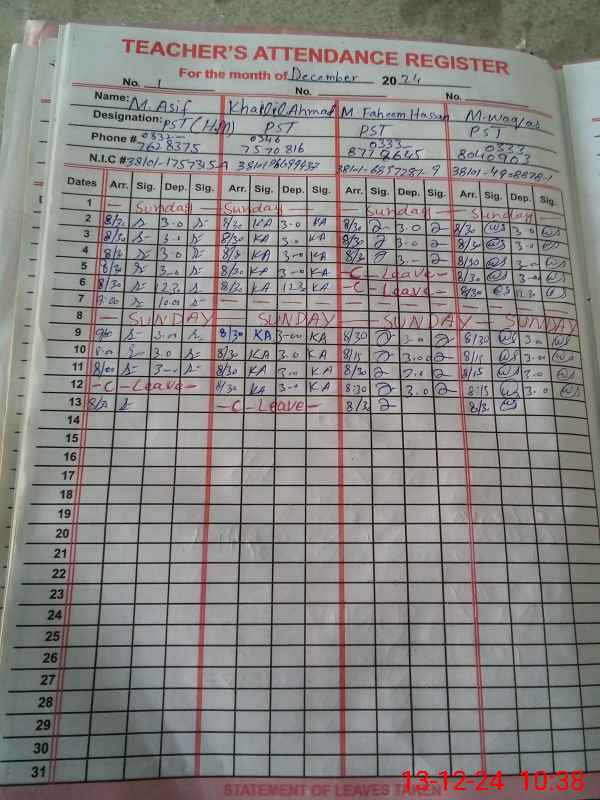 TEACHER'S ATTENDANCE REGISTER
For the month of December 2024
No. 1 No. No.
Name: M. Asif Khalil Ahmad M Faheem Hassan M. waqas
Designation: PST (HM) PST PST PST
Phone # 0332- 7628375 0346 7570816 0333- 8779645 0333 8040903
N.I.C # 38101-1757315-9 38101-6857287-9
Dates Arr. Sig. Dep. Sig. Arr. Sig. Dep. Sig. Arr. Sig. Dep. Sig. Arr. Sig. Dep. Sig.
1 — Sunday — Sunday — Sunday — Sunday —
2 8/30 3.0 8/30 KA 3.0 KA 8/30 3.0 8/30 WS 3.0 WS
3 8/30 3.0 8/30 KA 3.0 KA 8/30 3.0 8/30 WS 3.0 WS
4 8/30 3.0 8/30 KA 3.00 KA 8/30 3.- 8/30 WS 3.0 WS
5 8/30 3.0 8/30 KA 3.0 KA — C — Leave — 8/30 WS 3.0 WS
6 8/30 12.30 8/30 KA 12.30 KA — C — Leave — 8/30 WS 12.30 WS
7 9:00 10.00 — — — — — — — — — — — —
8 — SUNDAY — SUNDAY — SUNDAY — SUNDAY
9 9/00 3.00 8/30 KA 3.00 KA 8/30 3.0 8/30 WS 3.0 WS
10 3.0 8/30 KA 3.0 KA 8/15 3.00 8/15 WS 3.0 WS
11 8/00 3.0 8/30 KA 3.0 KA 8/30 3.0 8/15 WS 3.0 WS
12 — C — Leave — 8/30 KA 3.0 KA 8:30 3.0 8:15 WS 3.0 WS
13 8/30 — C — Leave — 8/30 8/30 WS
14
15
16
17
18
19
20
21
22
23
24
25
26
27
28
29
30
31
STATEMENT OF LEAVES TAKEN
13-12-24 10:38